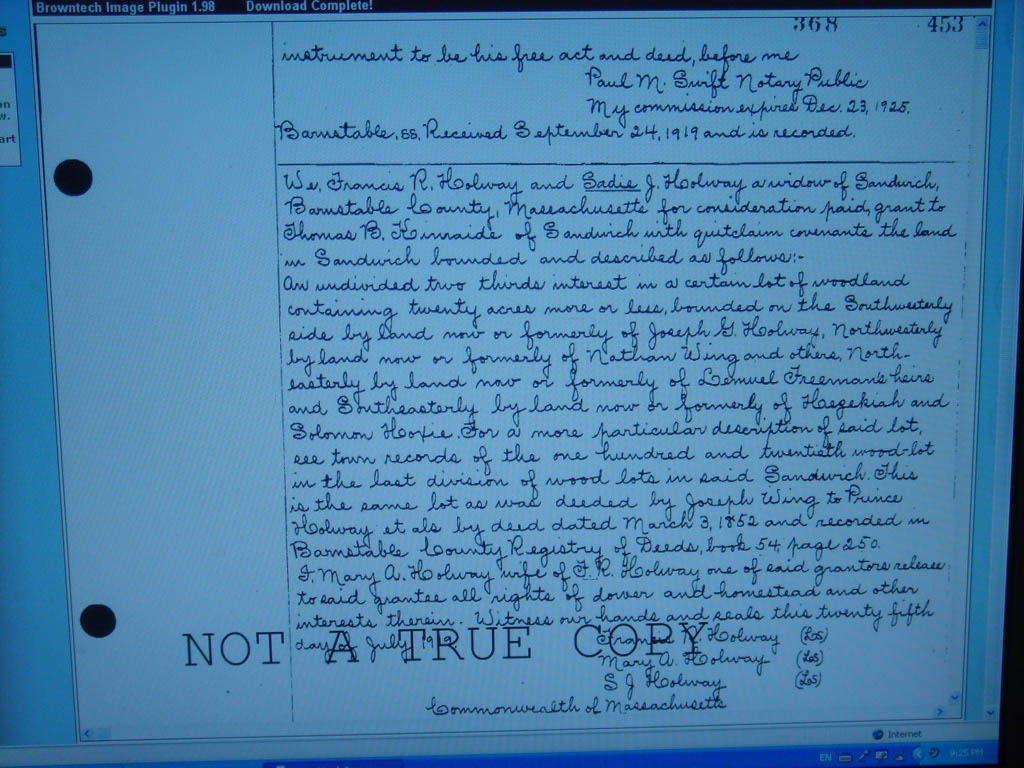 Browntech Image Plugin 1.98 Download Complete!
368 453
instrument to be his free act and deed, before me
Paul M. Swift Notary Public
My commission expires Dec. 23, 1925.
Barnstable, ss, Received September 24, 1919 and is recorded.
We, Francis R. Holway and Sadie J. Holway a widow of Sandwich,
Barnstable County, Massachusetts for consideration paid, grant to
Thomas B. Kinraide of Sandwich with quitclaim covenants the land
in Sandwich bounded and described as follows:-
An undivided two thirds interest in a certain lot of woodland
containing twenty acres more or less, bounded on the Southwesterly
side by land now or formerly of Joseph G. Holway, Northwesterly
by land now or formerly of Nathan Wing and others, North-
easterly by land now or formerly of Lemuel Freeman's heirs
and Southeasterly by land now or formerly of Hezekiah and
Solomon Hoxie. For a more particular description of said lot,
see town records of the one hundred and twentieth wood-lot
in the last division of wood lots in said Sandwich. This
is the same lot as was deeded by Joseph Wing to Prince
Holway et als by deed dated March 3, 1852 and recorded in
Barnstable County Registry of Deeds, book 54, page 250.
I, Mary A. Holway wife of F. R. Holway one of said grantors release
to said grantee all rights of dower and homestead and other
interests therein. Witness our hands and seals this twenty fifth
day of July Francis R. Holway (LS)
NOT A TRUE COPY
Mary A. Holway (LS)
S J Holway (LS)
Commonwealth of Massachusetts
Internet
EN 9:25 PM